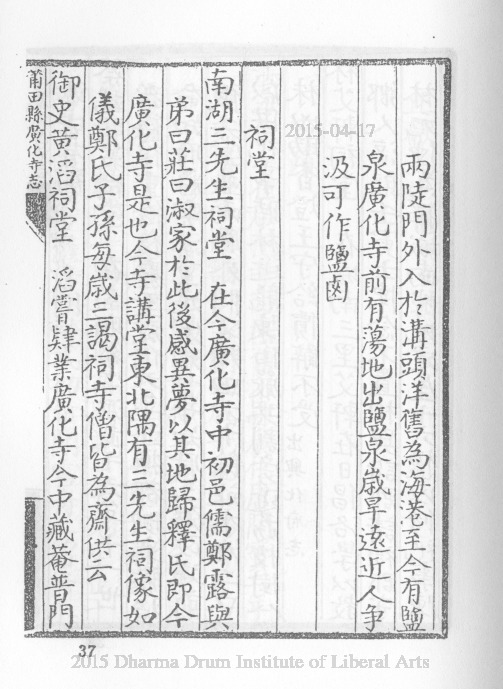 兩陡門外入於溝頭洋舊為海港至今有鹽
泉廣化寺前有蕩地出鹽泉歲旱遠近人爭
汲可作鹽鹵
祠堂
南湖三先生祠堂 在今廣化寺中初邑儒鄭露與
弟曰莊曰淑家於此後感異夢以其地歸釋氏即今
廣化寺是也今寺講堂東北隅有三先生祠像如
儀鄭氏子孫每歲三謁祠寺僧皆為齋供云
御史黃滔祠堂 滔嘗肄業廣化寺今中藏菴普門
莆田縣廣化寺志
37
2015-04-17
2015 Dharma Drum Institute of Liberal Arts